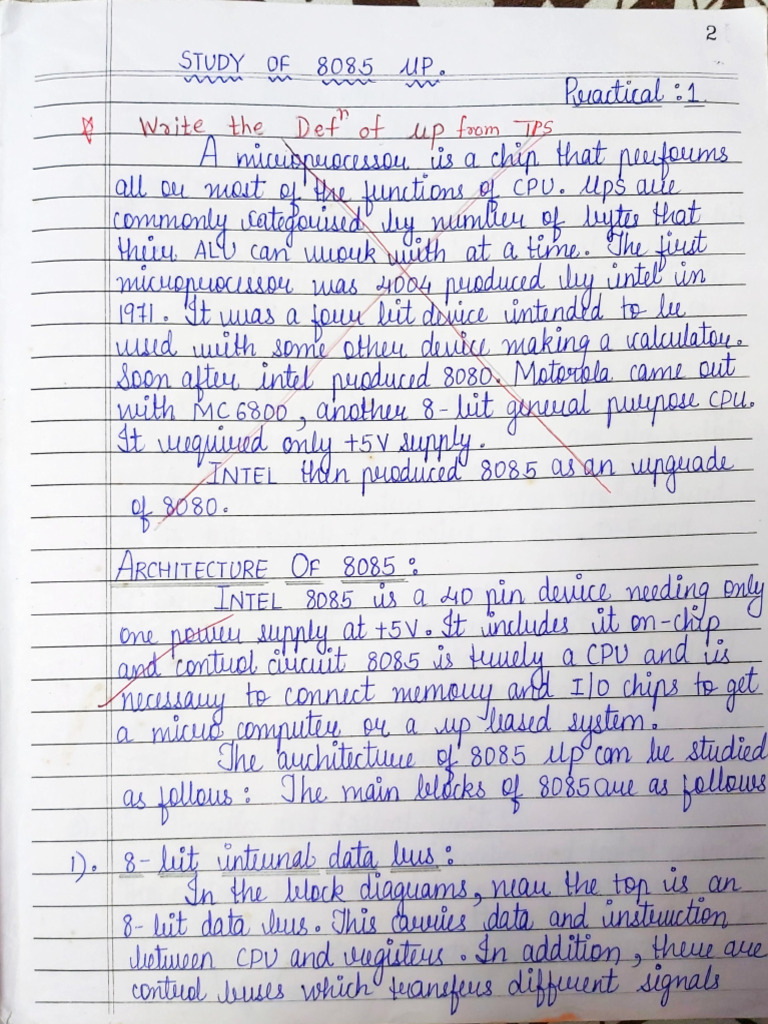 2
STUDY OF 8085 UP.
Practical : 1.
Write the Defⁿ of up from TPS
A microprocessor is a chip that performs
all or most of the functions of CPU. Ups are
commonly categorised by number of bytes that
their ALU can work with at a time. The first
microprocessor was 4004 produced by intel in
1971. It was a four bit device intended to be
used with some other device making a calculator.
Soon after intel produced 8080. Motorola came out
with MC6800, another 8-bit general purpose CPU.
It required only +5V supply.
INTEL then produced 8085 as an upgrade
of 8080.
ARCHITECTURE OF 8085 :
INTEL 8085 is a 40 pin device needing only
one power supply at +5V. It includes it on-chip
and control circuit 8085 is truely a CPU and is
necessary to connect memory and I/O chips to get
a micro computer or a up based system.
The architecture of 8085 Up can be studied
as follows : The main blocks of 8085 are as follows
1). 8-bit internal data bus :
In the block diagrams, near the top is an
8-bit data bus. This carries data and instruction
between CPU and registers. In addition, there are
control buses which transfers different signals